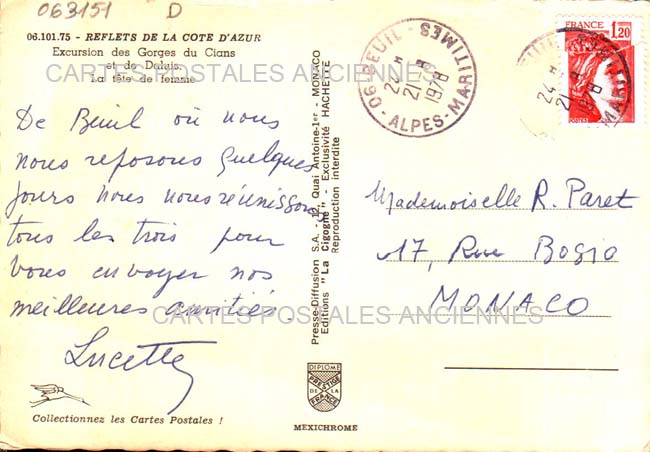 063151 D
06.101.75 - REFLETS DE LA COTE D'AZUR
Excursion des Gorges du Cians
et de Daluis.
La tête de femme
CARTES POSTALES ANCIENNES
De Beuil où nous
nous reposons quelques
jours nous nous réunissons
tous les trois pour
vous envoyer nos
meilleures amitiés.
Lucette
CARTES POSTALES ANCIENNES
Collectionnez les Cartes Postales !
Presse-Diffusion S.A. - 12, Quai Antoine-1er - MONACO
Editions "La Cigogne" - Exclusivité HACHETTE
Reproduction interdite
DIPLOME
PRESTIGE
DE LA
FRANCE
MEXICHROME
06 BEUIL
24 H
21 - 8
1978
ALPES-MARITIMES
FRANCE
1,20
POSTES
24 H
21 - 8
1978
MARITIMES
Mademoiselle R. Paret
17, Rue Bosio
MONACO